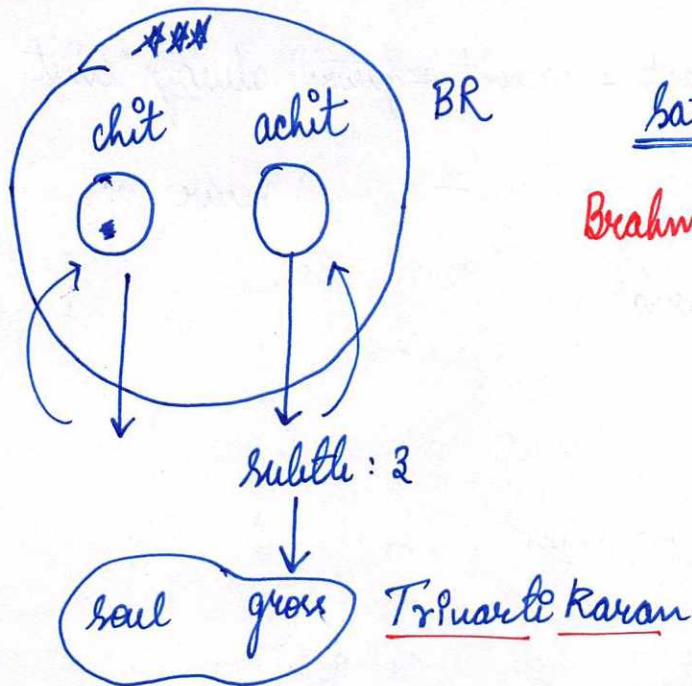 chit achit BR
Brahm
subtle : 3
soul gross Trivarti Karan